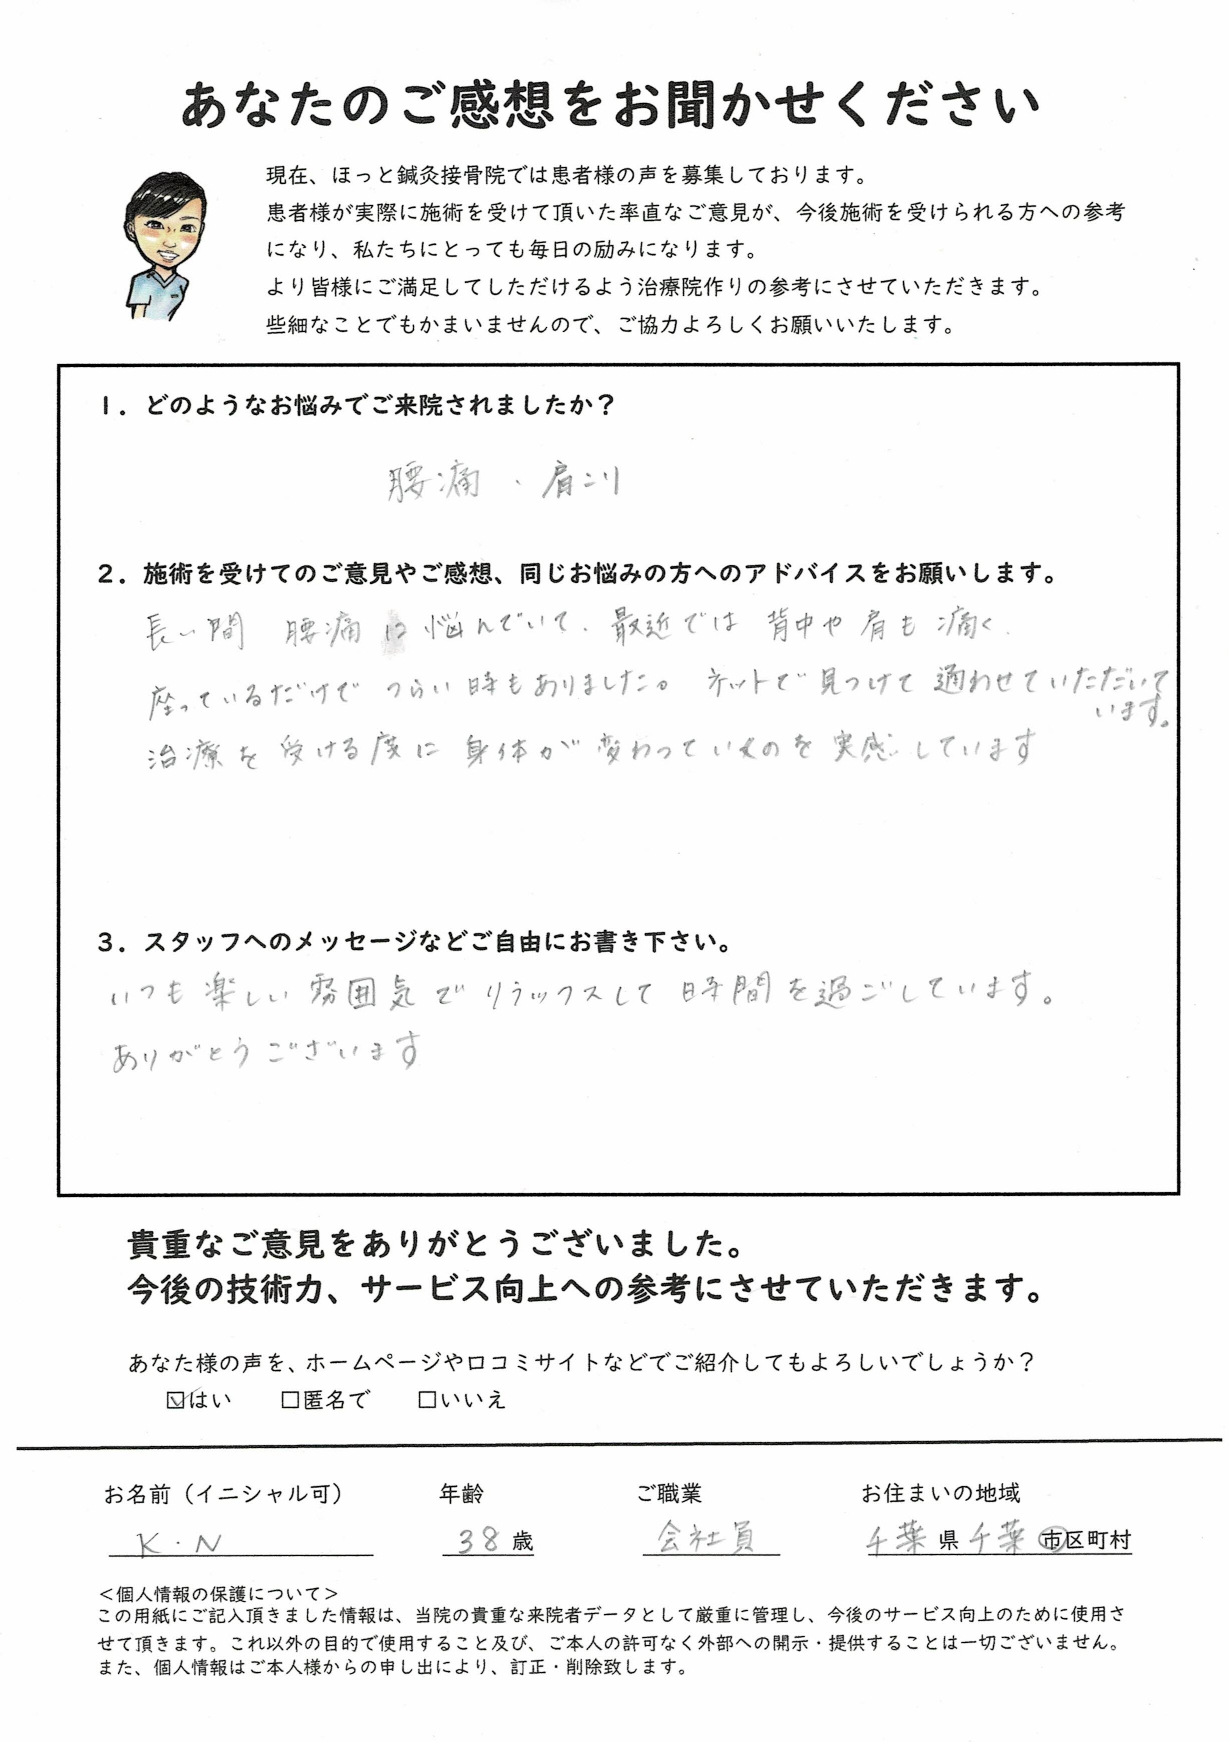 あなたのご感想をお聞かせください
現在、ほっと鍼灸接骨院では患者様の声を募集しております。
患者様が実際に施術を受けて頂いた率直なご意見が、今後施術を受けられる方への参考
になり、私たちにとっても毎日の励みになります。
より皆様にご満足してしただけるよう治療院作りの参考にさせていただきます。
些細なことでもかまいませんので、ご協力よろしくお願いいたします。
1．どのようなお悩みでご来院されましたか？
腰痛、肩こり
2．施術を受けてのご意見やご感想、同じお悩みの方へのアドバイスをお願いします。
長い間 腰痛に悩んでいて、最近では 背中や肩も痛く、
座っているだけで つらい時もありました。ネットで見つけて通わせていただいて
います。
治療を受ける度に 身体が変わっていくのを実感しています
3．スタッフへのメッセージなどご自由にお書き下さい。
いつも楽しい雰囲気でリラックスして時間を過ごしています。
ありがとうございます
貴重なご意見をありがとうございました。
今後の技術力、サービス向上への参考にさせていただきます。
あなた様の声を、ホームページや口コミサイトなどでご紹介してもよろしいでしょうか？
☑はい □匿名で □いいえ
お名前（イニシャル可） 年齢 ご職業 お住まいの地域
K・N 38歳 会社員 千葉県千葉市区町村
＜個人情報の保護について＞
この用紙にご記入頂きました情報は、当院の貴重な来院者データとして厳重に管理し、今後のサービス向上のために使用さ
せて頂きます。これ以外の目的で使用すること及び、ご本人の許可なく外部への開示・提供することは一切ございません。
また、個人情報はご本人様からの申し出により、訂正・削除致します。